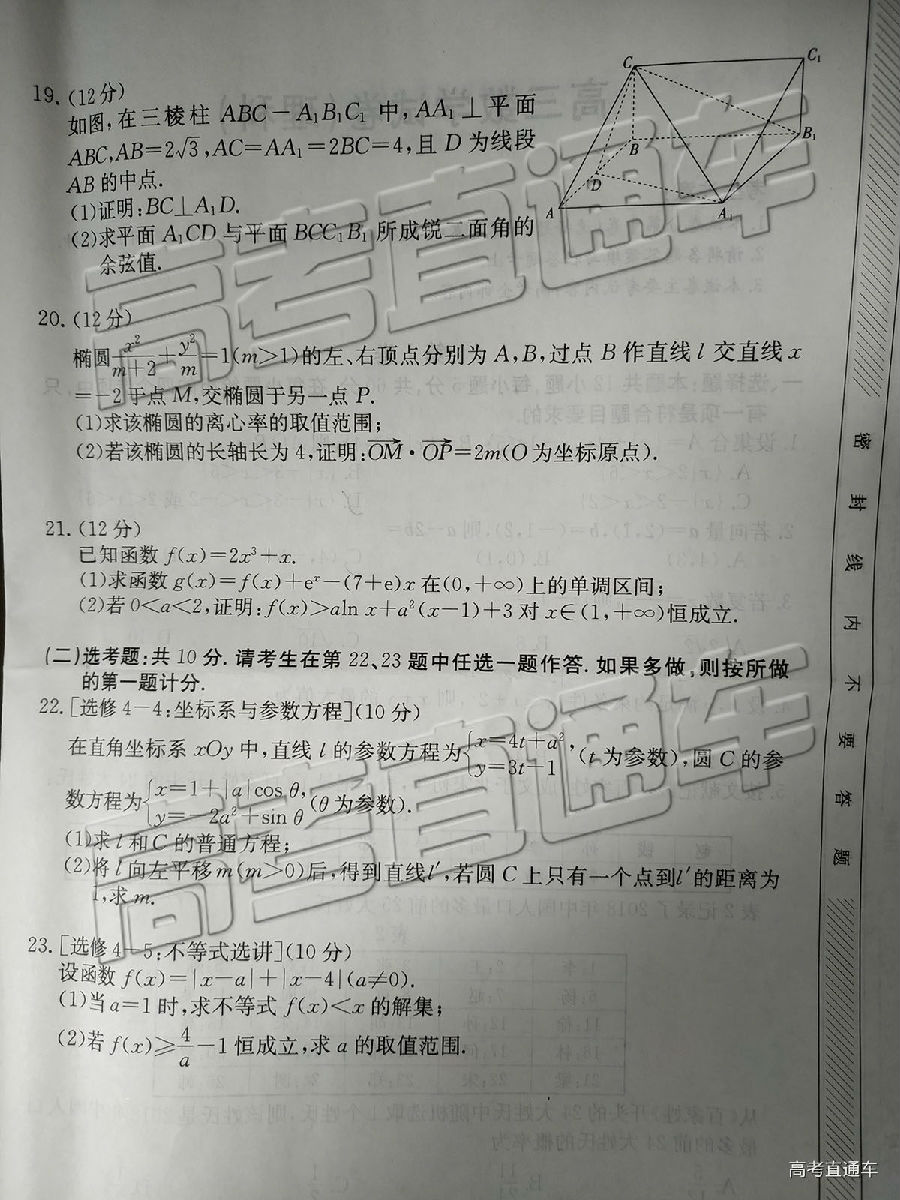 19.(12分)
如图,在三棱柱 ABC-A₁B₁C₁ 中,AA₁⊥平面
ABC,AB=2√3,AC=AA₁=2BC=4,且 D 为线段
AB 的中点.
(1)证明:BC⊥A₁D.
(2)求平面 A₁CD 与平面 BCC₁B₁ 所成锐二面角的
余弦值.
C
C₁
B
B₁
D
A
A₁
20.(12分)
椭圆 x²/(m+2)+y²/m=1(m>1)的左、右顶点分别为 A,B,过点 B 作直线 l 交直线 x
=-2于点 M,交椭圆于另一点 P.
(1)求该椭圆的离心率的取值范围;
(2)若该椭圆的长轴长为 4,证明:OM→·OP→=2m(O 为坐标原点).
21.(12分)
已知函数 f(x)=2x³+x.
(1)求函数 g(x)=f(x)+eˣ-(7+e)x 在(0,+∞)上的单调区间;
(2)若 0<a<2,证明:f(x)>aln x+a²(x-1)+3 对 x∈(1,+∞)恒成立.
(二)选考题:共 10 分.请考生在第 22、23 题中任选一题作答.如果多做,则按所做
的第一题计分.
22.[选修 4-4:坐标系与参数方程](10 分)
在直角坐标系 xOy 中,直线 l 的参数方程为{x=4t+a², y=3t-1 (t 为参数),圆 C 的参
数方程为{x=1+|a|cos θ, y=-2a³+sin θ (θ 为参数).
(1)求 l 和 C 的普通方程;
(2)将 l 向左平移 m(m>0)后,得到直线 l′,若圆 C 上只有一个点到 l′的距离为
1,求 m.
23.[选修 4-5:不等式选讲](10 分)
设函数 f(x)=|x-a|+|x-4|(a≠0).
(1)当 a=1 时,求不等式 f(x)<x 的解集;
(2)若 f(x)≥4/a-1 恒成立,求 a 的取值范围.
密封线内不要答题
高考直通车
高考直通车
高考直通车
高考直通车